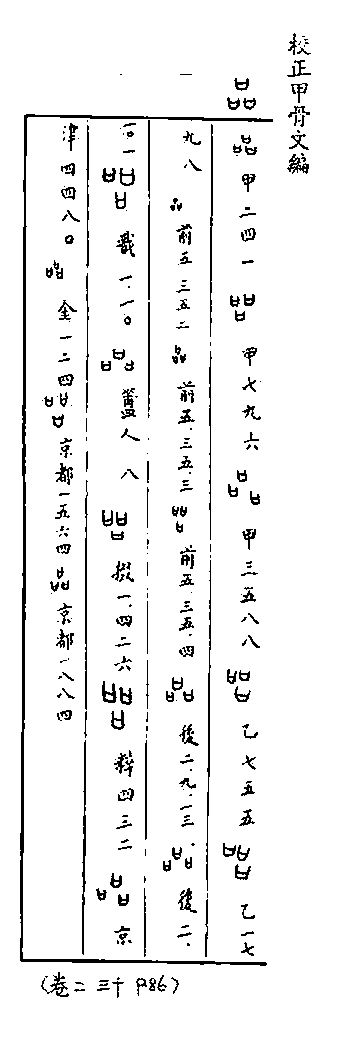 校正甲骨文編
品
品 甲二四一 品 甲七九六 品 甲三五八八 品 乙七五五 品 乙一七
九八 品 前五.三五.二 品 前五.三五.三 品 前五.三五.四 品 後二.九.一三. 品 後二.
一〇.一 品 戩一.一〇 品 簠人八 品 掇一.四二六 品 粹四三二 品 京
津四四八〇 品 金一二四 品 京都一五六四 品 京都一八八四
(卷二 三十 P86)